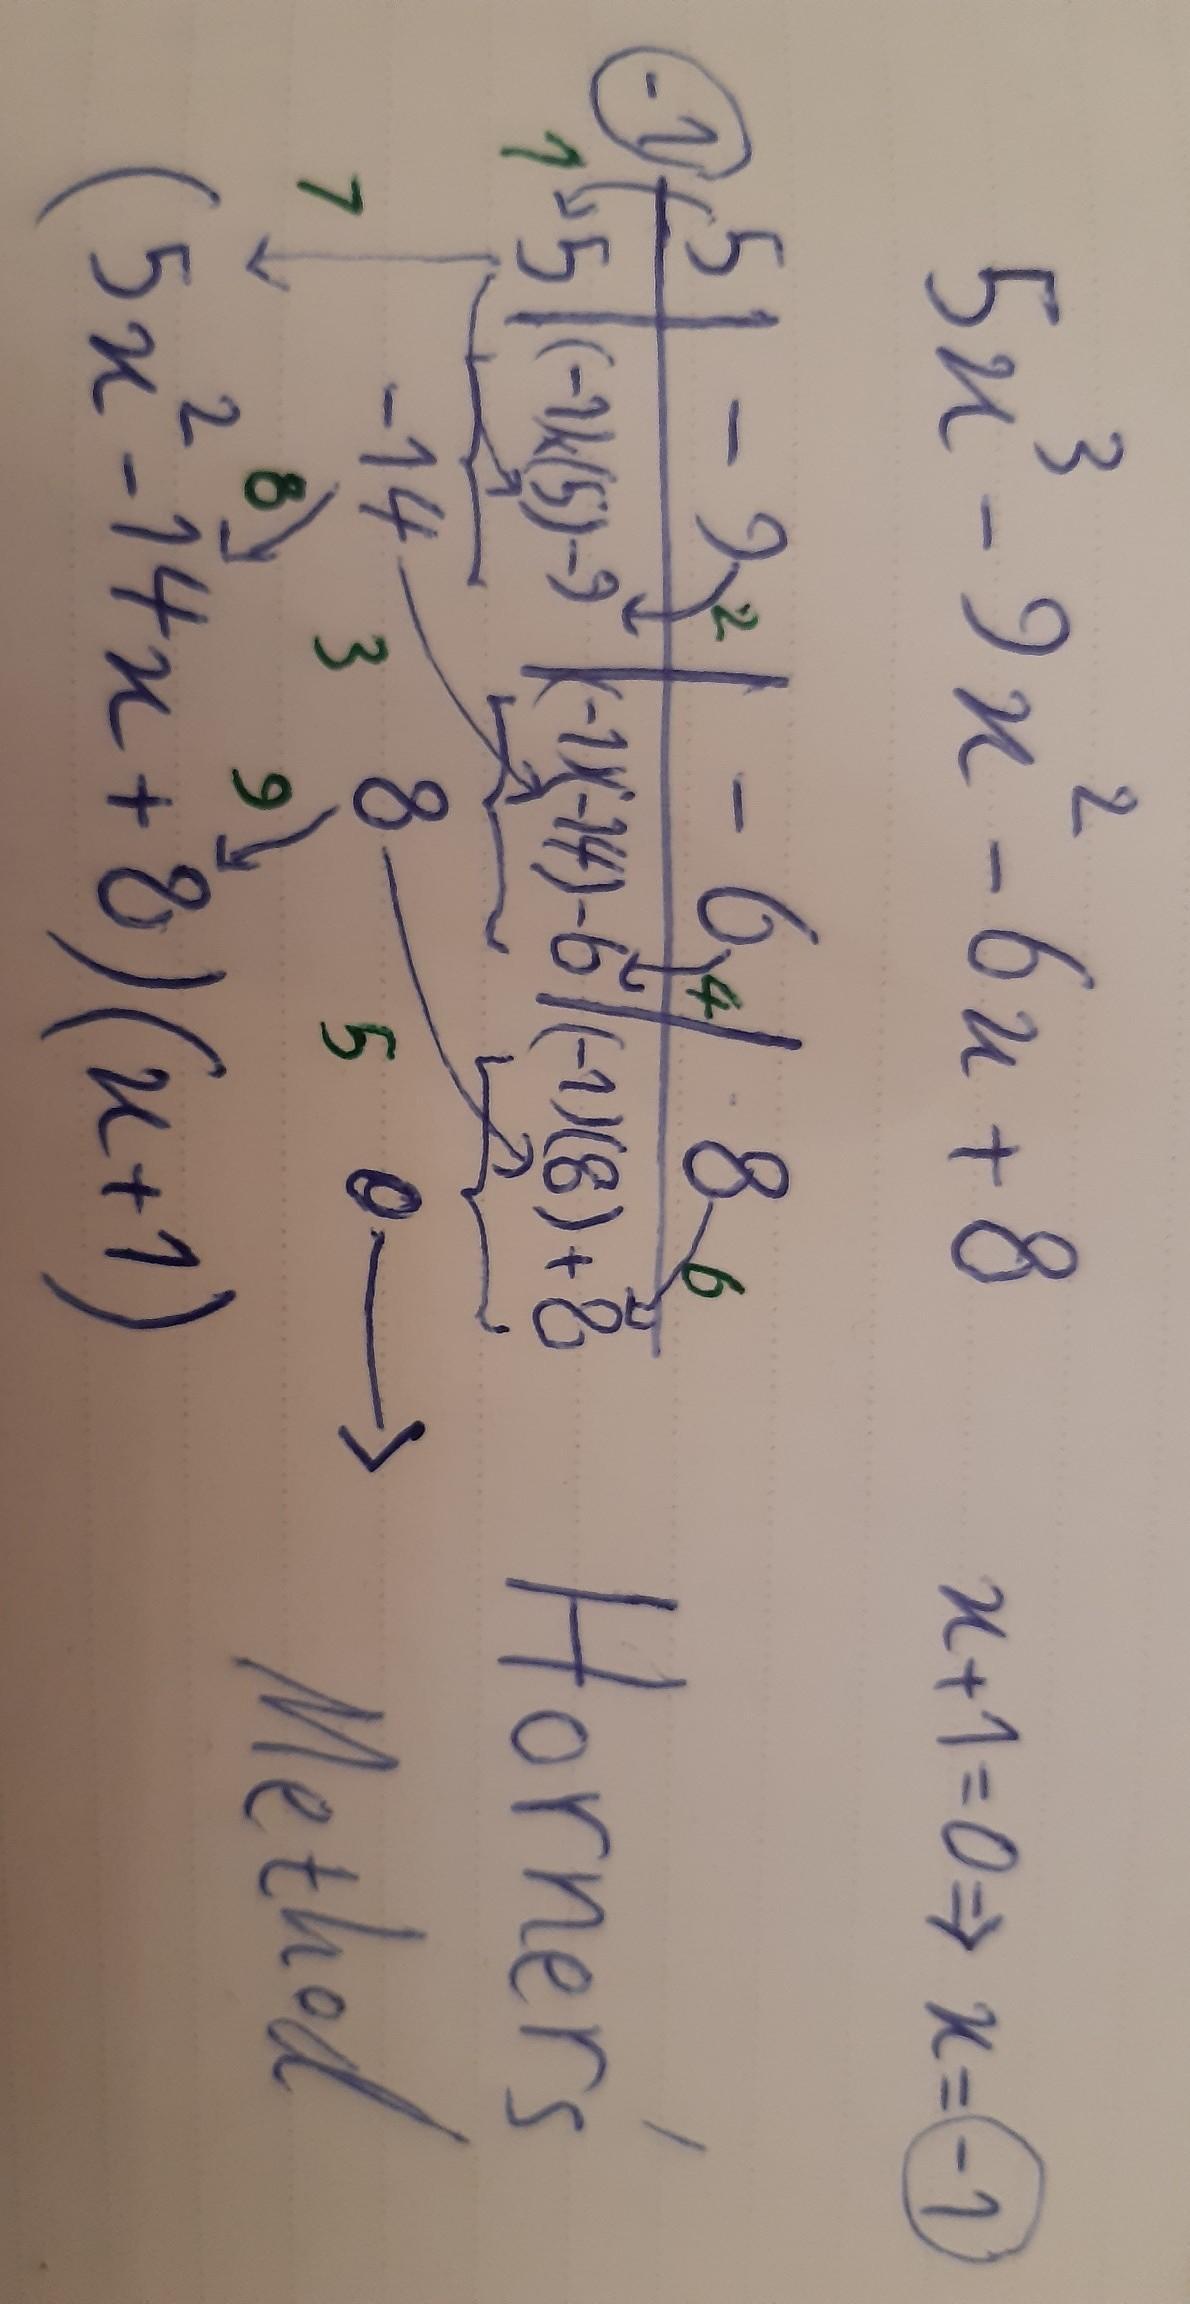 5x³ - 9x² - 6x + 8    x+1=0 ⇒ x = -1
5 | - 9 2 | - 6 4 | 8 6
-1
1 5 | (-1)(5)-9 | (-1)(-14)-6 | (-1)(8)+8    Horner's
-14 3 8 5 0 →    Method
7 8 9
(5x² - 14x + 8)(x+1)